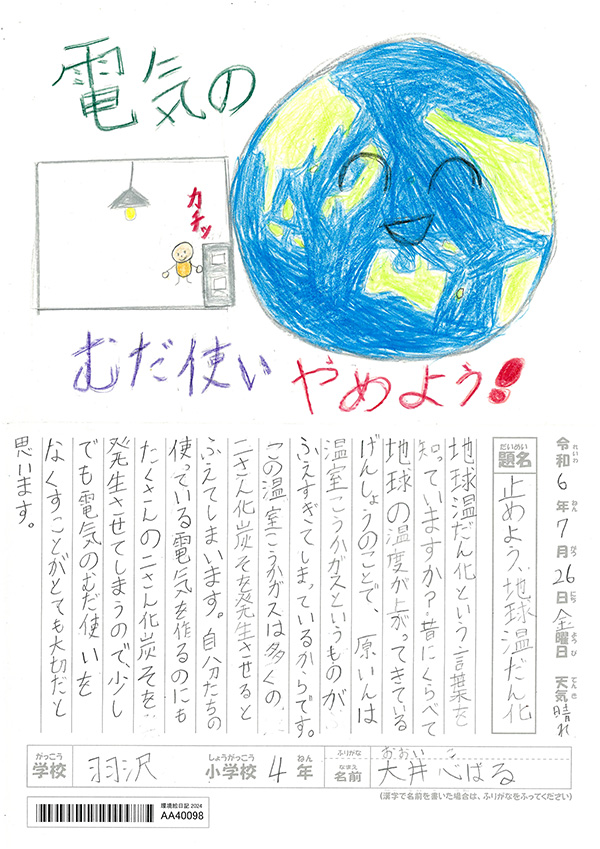 電気の
カチッ
むだ使い やめよう!!
令和6年7月26日金曜日 天気 晴れ
れいわ ねん がつ にち ようび てんき
だいめい
題名
止めよう、地球温だん化
地球温だん化という言葉を
知っていますか?昔にくらべて
地球の温度が上がってきている
げんしょうのことで、原いんは
温室こうかガスというものが
ふえすぎてしまっているからです。
この温室こうかガスは多くの、
二さん化炭そを発生させると
ふえてしまいます。自分たちの
使っている電気を作るのにも
たくさんの二さん化炭そを
発生させてしまうので、少し
でも電気のむだ使いを
なくすことがとても大切だと
思います。
がっこう しょうがっこう ねん
学校 羽沢 小学校 4年
ふりがな おおい こ
なまえ
名前 大井 心ばる
(漢字で名前を書いた場合は、ふりがなをふってください)
環境絵日記 2024
AA40098